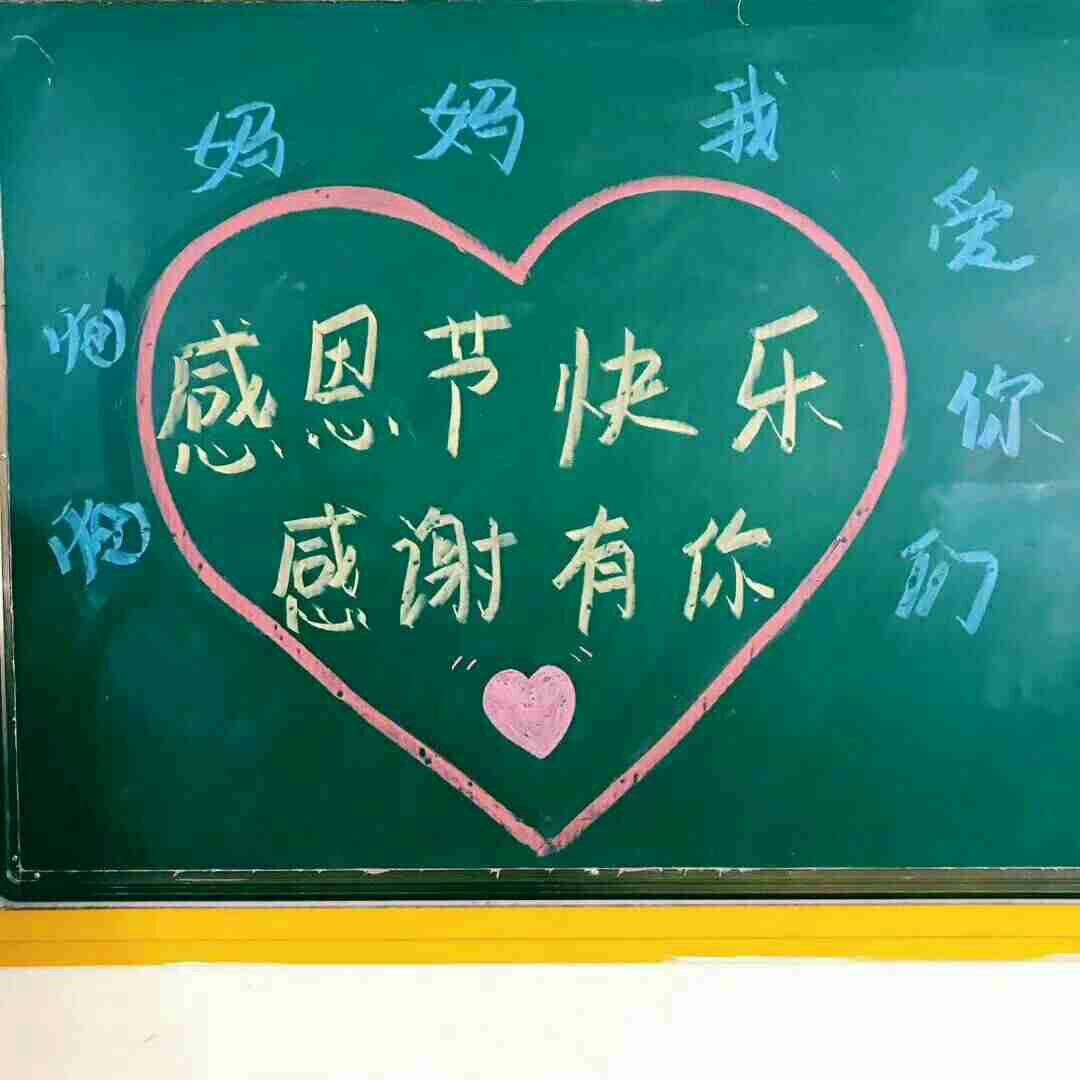 妈妈我爱你们
感恩节快乐
感谢有你